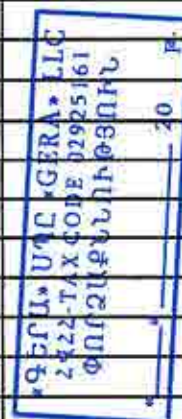 «ԳԵՐԱ» ՍՊԸ «GERA» LLC
ՀՎՀՀ-TAX CODE 02925161
ՓՈՐՁԱՔՆՆՈՒԹՅՈՒՆ
« » 20 թ.